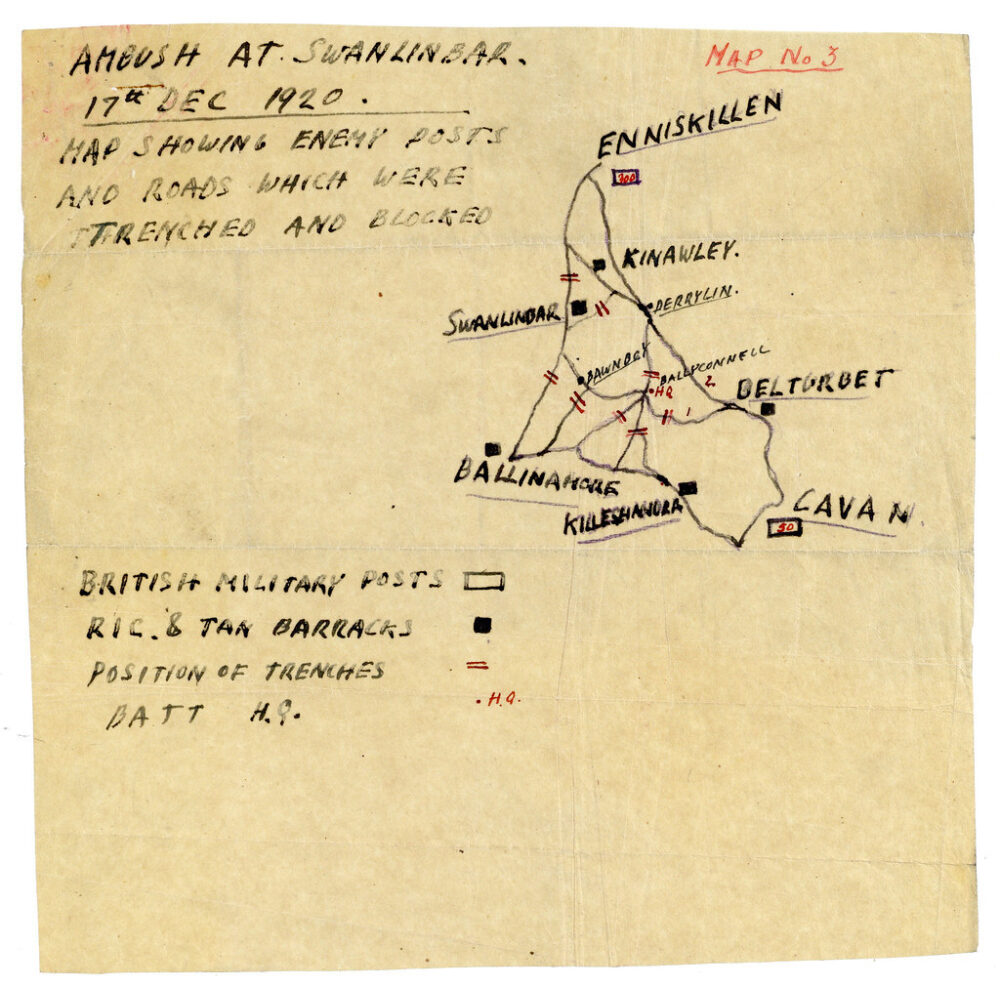 AMBUSH AT. SWANLINBAR.
17th DEC 1920.
MAP SHOWING ENEMY POSTS
AND ROADS WHICH WERE
TTRENCHED AND BLOCKED
MAP No 3
ENNISKILLEN
300
KINAWLEY.
DERRYLIN.
SWANLINBAR
BAWNBOY
BALLYCONNELL
H.Q
2
BELTURBET
1
BALLINAMORE
KILLESHANDRA
CAVAN.
50
BRITISH MILITARY POSTS
RIC. & TAN BARRACKS
POSITION OF TRENCHES
BATT H.Q.
• H.Q.